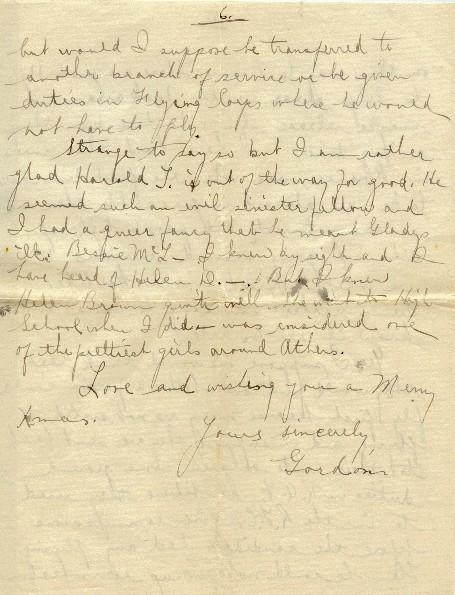 6.
but would I suppose be transferred to
another branch of service or be given
duties in Flying Corps where he would
not have to fly.
Strange to say so but I am rather
glad Harold T. is out of the way for good. He
seemed such an evil sinister fellow and
I had a queer fancy that he meant Gladys
ill. Bessie McL— I knew by sight and I
have heard of Helen D.—. But I knew
Helen Brown quite well. She went to High
School when I did & was considered one
of the prettiest girls around Athens.
Love and wishing you a Merry
Xmas.
Yours sincerely
Gordon.